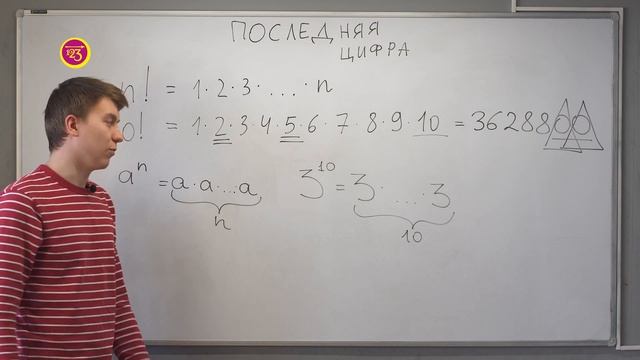 ПОСЛЕДНЯЯ
ЦИФРА
123
n! = 1·2·3·....·n
0! = 1·2·3·4·5·6·7·8·9·10 = 3628800
aⁿ = a·a·...a
n
3¹⁰ = 3·....·3
10